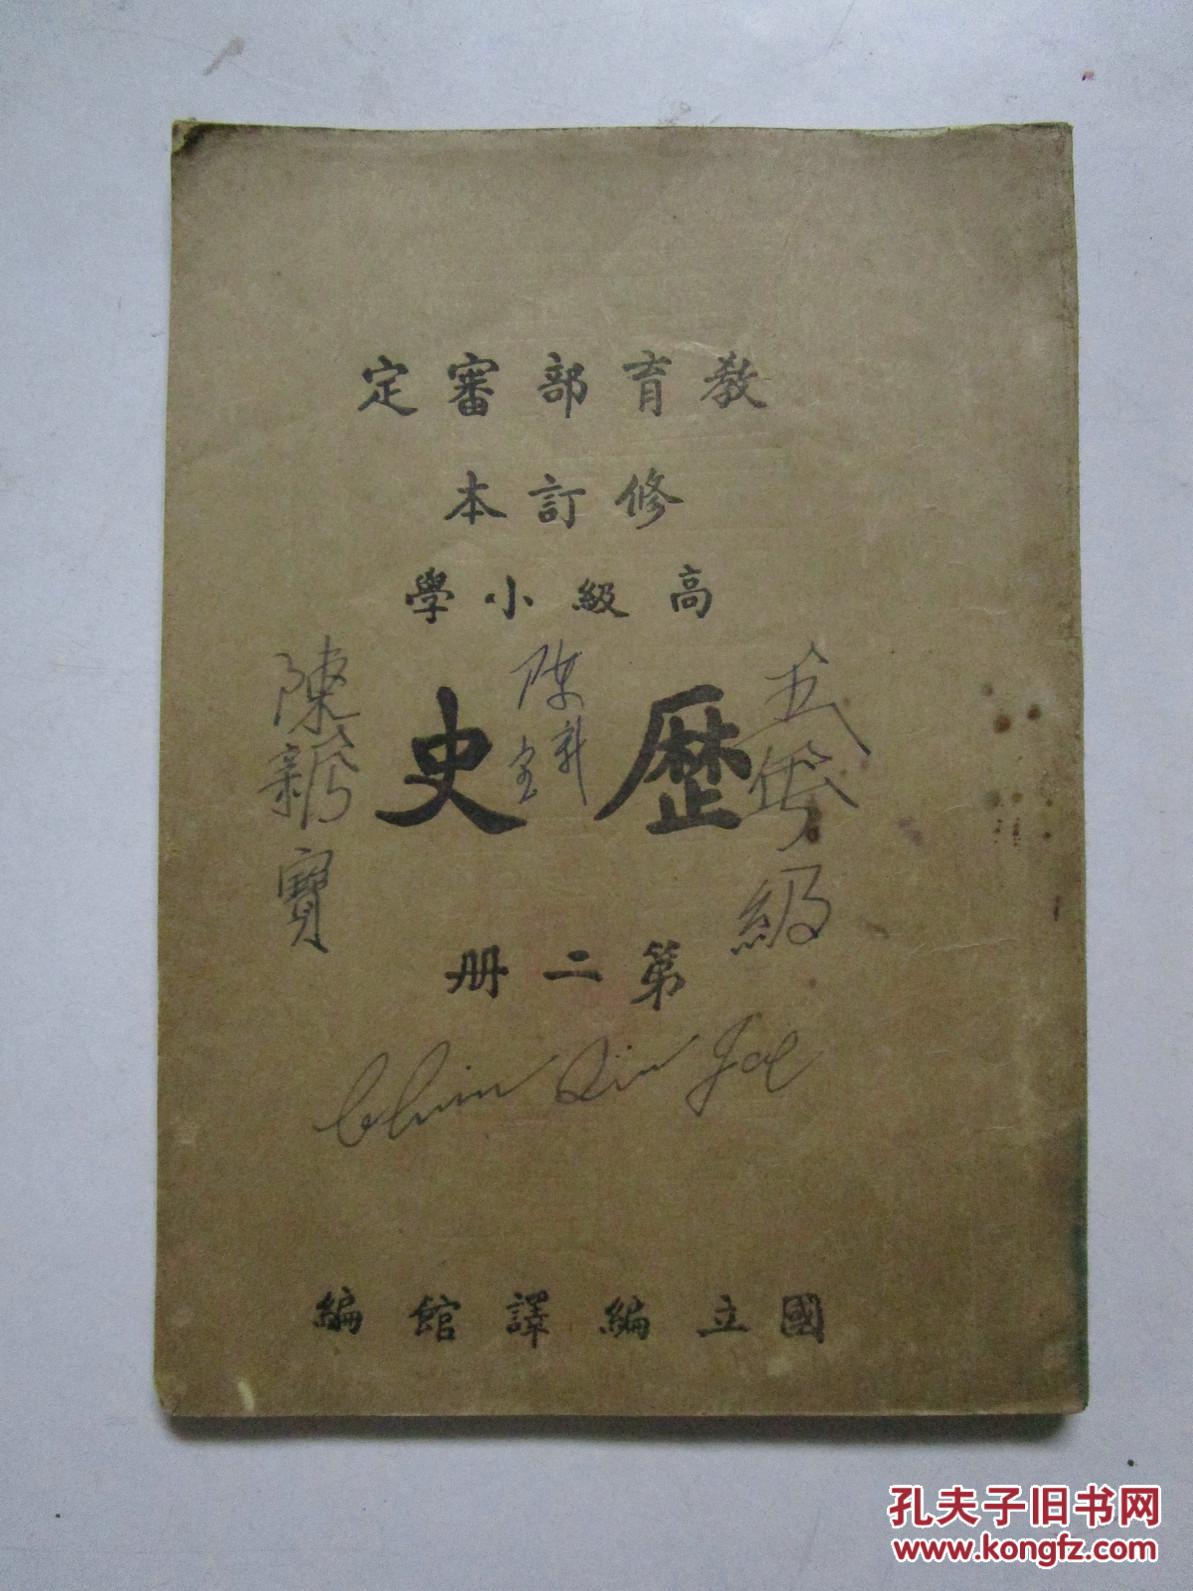 教育部審定
修訂本
高級小學
歷史
五年級
陈新宝
陳新寶
第二册
Chin Sin Joe
國立編譯館編
孔夫子旧书网
www.kongfz.com